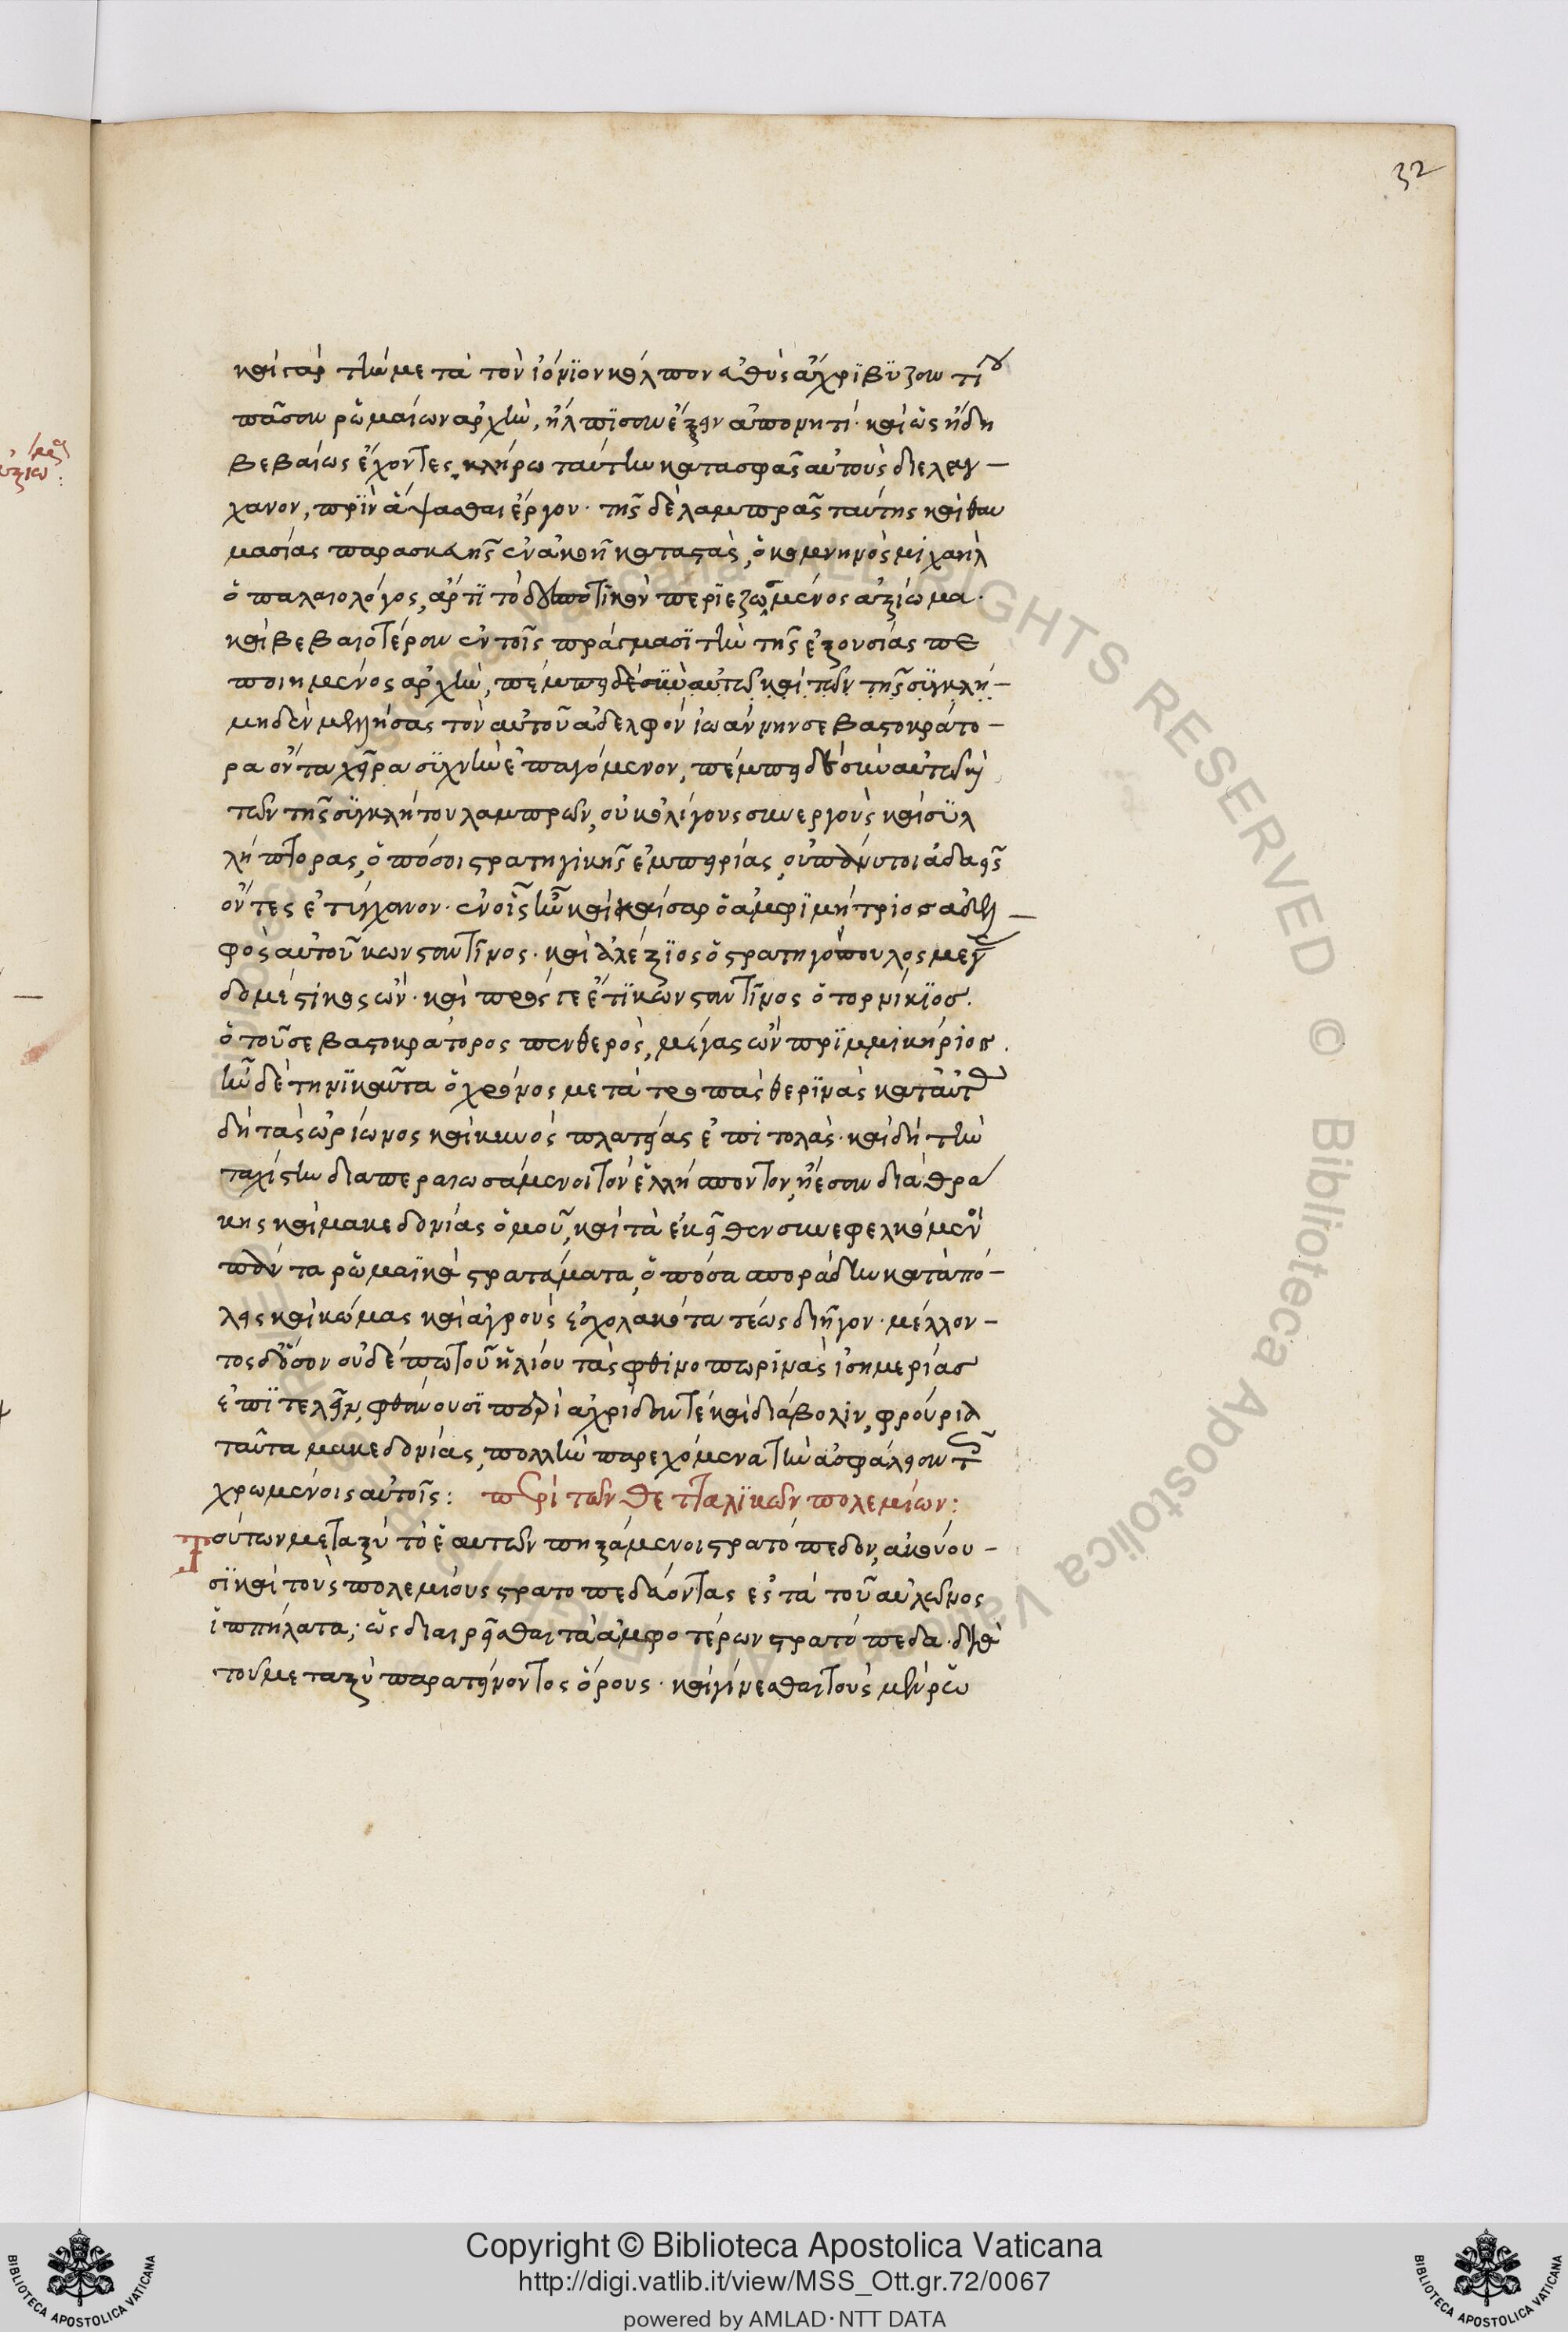 32
καὶ γὰρ τὴν μετὰ τὸν ἰόνϊον κόλπον εὐθὺς ἄχρι βϋζαντίου
πᾶσαν ῥωμαίων ἀρχὴν, ἤλπϊσαν ἕξειν ἀπονητί· καὶ ὡς ἤδη
βεβαίως ἔχοντες, κλήρω ταύτην κατασφᾶς αὐτοὺς διελαγ-
χανον, πρϊν ἅψασθαι ἔργου· τῆς δὲ λαμπρᾶς ταύτης καὶ θαυ
μασίας παρασκευῆς ἐν ἀκοῆ καταστὰς, ὁ κομνηνὸς μιχαὴλ
ὁ παλαιολόγος, ἄρτϊ τὸ δεσποτικὸν περϊεζωσμένος ἀξίωμα·
καὶ βεβαιοτέραν ἐν τοῖς πράγμασϊ τὴν τῆς ἐξουσίας πε
ποιημένος ἀρχὴν, πέμπει δὲ σὺν αὐτῶ καὶ τῶν τῆς συγκλή-
μηδὲν μελλήσας τὸν αὐτοῦ ἀδελφὸν ἰωάννην σεβαστοκράτο-
ρα ὄντα χεῖρα συχνὴν ἐπαγόμενον, πέμπει δὲ σὺν αὐτῶ καὶ
τῶν τῆς συγκλήτου λαμπρῶν, οὐκ ὀλίγους συνεργοὺς καὶ συλ
λήπτορας, ὁπόσοι στρατηγικῆς ἐμπειρίας, οὐ πάνυ τοι ἀδαεῖς
ὄντες ἐτύγχανον· ἐν οἷς ἦν καὶ καῖσαρ ὁ ἀμφϊμήτριος ἀδελ-
φὸς αὐτοῦ κωνσταντῖνος· καὶ ἀλέξϊος ὁ στρατηγόπουλος μέγας
δομέστικος ὤν· καὶ πρός γε ἔτϊ κωνσταντῖνος ὁ τορνίκϊος.
ὁ τοῦ σεβαστοκράτορος πενθερὸς, μέγας ὢν πρϊμμικήριος.
ἦν δὲ τηνϊκαῦτα ὁ χρόνος μετὰ τροπὰς θερϊνὰς κατ' αὐτὰς
δὴ τὰς ὠρίωνος καὶ κυνὸς πλατείας ἐπιτολάς· καὶ δὴ τὴν
ταχίστην διαπεραιωσάμενοι τὸν ἑλλήσποντον, ἤεσαν διὰ θρά
κης καὶ μακεδονίας ὁμοῦ, καὶ τὰ ἐκεῖθεν συνεφελκόμενοι
πάντα ῥωμαϊκὰ στρατεύματα, ὁπόσα σποράδην κατὰ πό-
λεις καὶ κώμας καὶ ἀγροὺς ἐσχολακότα τέως διῆγον· μέλλον-
τος δ' ὅσον οὐδέπω τοῦ ἡλίου τὰς φθινοπωρινὰς ἰσημερίας
ἐπϊτελεῖν, φθάνουσϊ περὶ ἀχρίδαν τὲ καὶ διάβολιν, φρούρια
ταῦτα μακεδονίας, πολλὴν παρεχόμενα τὴν ἀσφάλειαν τοῖς
χρωμένοις αὐτοῖς: περὶ τῶν θετταλϊκῶν πολεμίων:
Τούτων μεταξὺ τὸ ἑαυτῶν πηξάμενοι στρατόπεδον, ἀκούου-
σϊ καὶ τοὺς πολεμίους στρατοπεδεύοντας ἐς τὰ τοῦ αὐλῶνος
ἱππήλατα; ὡς διαιρεῖσθαι τὰ ἀμφοτέρων στρατόπεδα· διὰ
τοῦ μεταξὺ παρατείνοντος ὄρους· καὶ γίνεσθαι τοὺς μὲν ῥω
Biblioteca Apostolica Vaticana ALL RIGHTS RESERVED ©
Copyright © Biblioteca Apostolica Vaticana
http://digi.vatlib.it/view/MSS_Ott.gr.72/0067
powered by AMLAD·NTT DATA
BIBLIOTECA APOSTOLICA VATICANA
BIBLIOTECA APOSTOLICA VATICANA